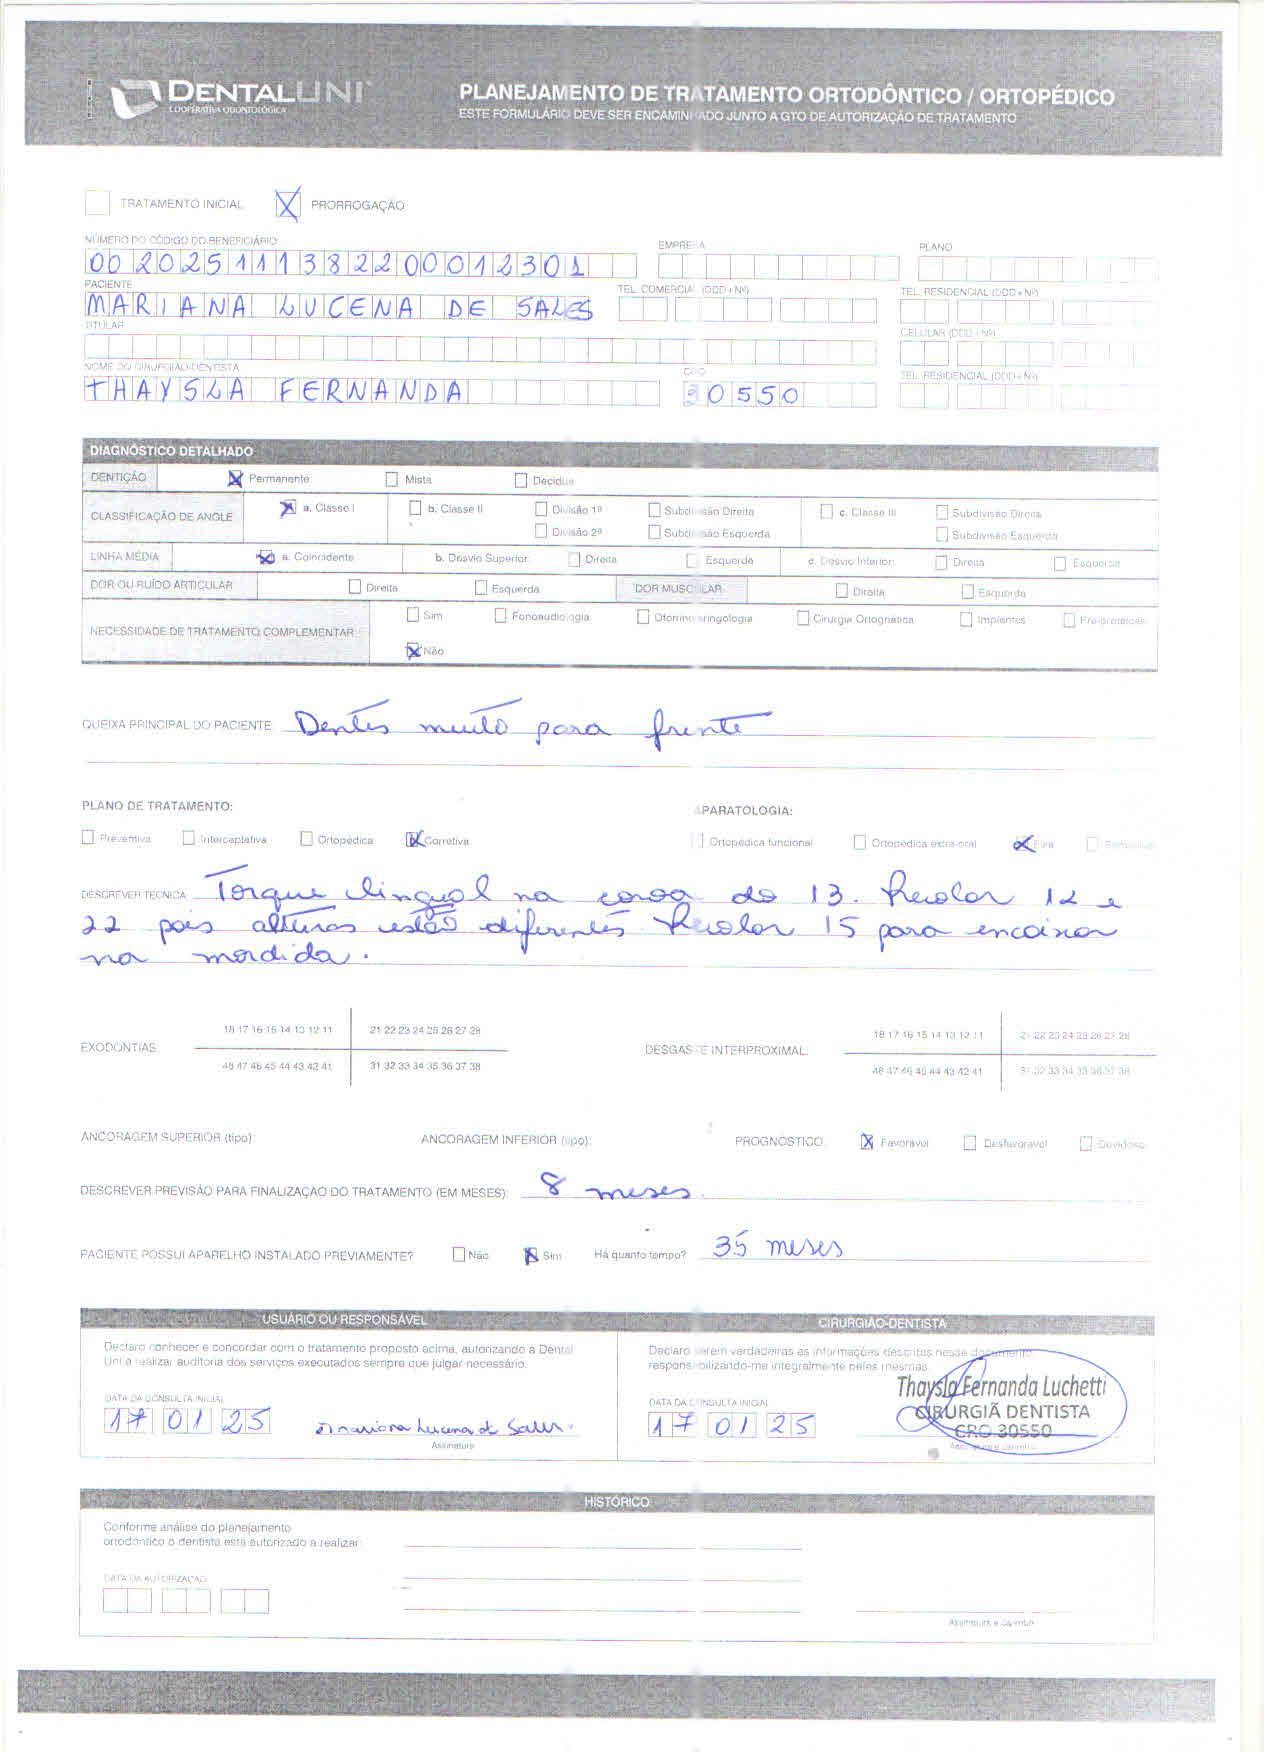 DENTALUNI
COOPERATIVA ODONTOLÓGICA
PLANEJAMENTO DE TRATAMENTO ORTODÔNTICO / ORTOPÉDICO
ESTE FORMULÁRIO DEVE SER ENCAMINHADO JUNTO A GTO DE AUTORIZAÇÃO DE TRATAMENTO
TRATAMENTO INICIAL X PRORROGAÇÃO
NÚMERO DO CÓDIGO DO BENEFICIÁRIO EMPRESA PLANO
002025111382200012301
PACIENTE TEL. COMERCIAL (DDD + Nº) TEL. RESIDENCIAL (DDD + Nº)
MARIANA LUCENA DE SALES
TITULAR CELULAR (DDD + Nº)
NOME DO CIRURGIÃO-DENTISTA CRO TEL. RESIDENCIAL (DDD + Nº)
THAYSLA FERNANDA 30550
DIAGNÓSTICO DETALHADO
DENTIÇÃO X Permanente Mista Decídua
CLASSIFICAÇÃO DE ANGLE X a. Classe I b. Classe II Divisão 1ª Subdivisão Direita c. Classe III Subdivisão Direita
Divisão 2ª Subdivisão Esquerda Subdivisão Esquerda
LINHA MÉDIA X a. Coincidente b. Desvio Superior: Direita Esquerda c. Desvio Inferior: Direita Esquerda
DOR OU RUÍDO ARTICULAR Direita Esquerda DOR MUSCULAR Direita Esquerda
NECESSIDADE DE TRATAMENTO COMPLEMENTAR Sim Fonoaudiologia Otorrinolaringologia Cirurgia Ortognática Implantes Pré-protética
X Não
QUEIXA PRINCIPAL DO PACIENTE Dentes muito para frente
PLANO DE TRATAMENTO: APARATOLOGIA:
Preventiva Interceptativa Ortopédica X Corretiva Ortopédica funcional Ortopédica extra-oral X Fixa Removível
DESCREVER TÉCNICA Torque lingual na coroa do 13. Recolar 12 e
22 pois alturas estão diferentes. Recolar 15 para encaixar
na mordida.
18 17 16 15 14 13 12 11 21 22 23 24 25 26 27 28 18 17 16 15 14 13 12 11 21 22 23 24 25 26 27 28
EXODONTIAS: DESGASTE INTERPROXIMAL:
48 47 46 45 44 43 42 41 31 32 33 34 35 36 37 38 48 47 46 45 44 43 42 41 31 32 33 34 35 36 37 38
ANCORAGEM SUPERIOR (tipo): ANCORAGEM INFERIOR (tipo): PROGNÓSTICO: X Favorável Desfavorável Duvidoso
DESCREVER PREVISÃO PARA FINALIZAÇÃO DO TRATAMENTO (EM MESES): 8 meses.
PACIENTE POSSUI APARELHO INSTALADO PREVIAMENTE? Não X Sim Há quanto tempo? 35 meses
USUÁRIO OU RESPONSÁVEL CIRURGIÃO-DENTISTA
Declaro conhecer e concordar com o tratamento proposto acima, autorizando a Dental
Uni a realizar auditoria dos serviços executados sempre que julgar necessário.
Declaro serem verdadeiras as informações descritas nesse documento
responsabilizando-me integralmente pelas mesmas.
Thaysla Fernanda Luchetti
CIRURGIÃ DENTISTA
CRO 30550
DATA DA CONSULTA INICIAL DATA DA CONSULTA INICIAL
17 01 25 Mariana Lucena de Sales. 17 01 25
Assinatura Assinatura e carimbo
HISTÓRICO
Conforme análise do planejamento
ortodôntico o dentista está autorizado a realizar:
DATA DA AUTORIZAÇÃO
Assinatura e carimbo